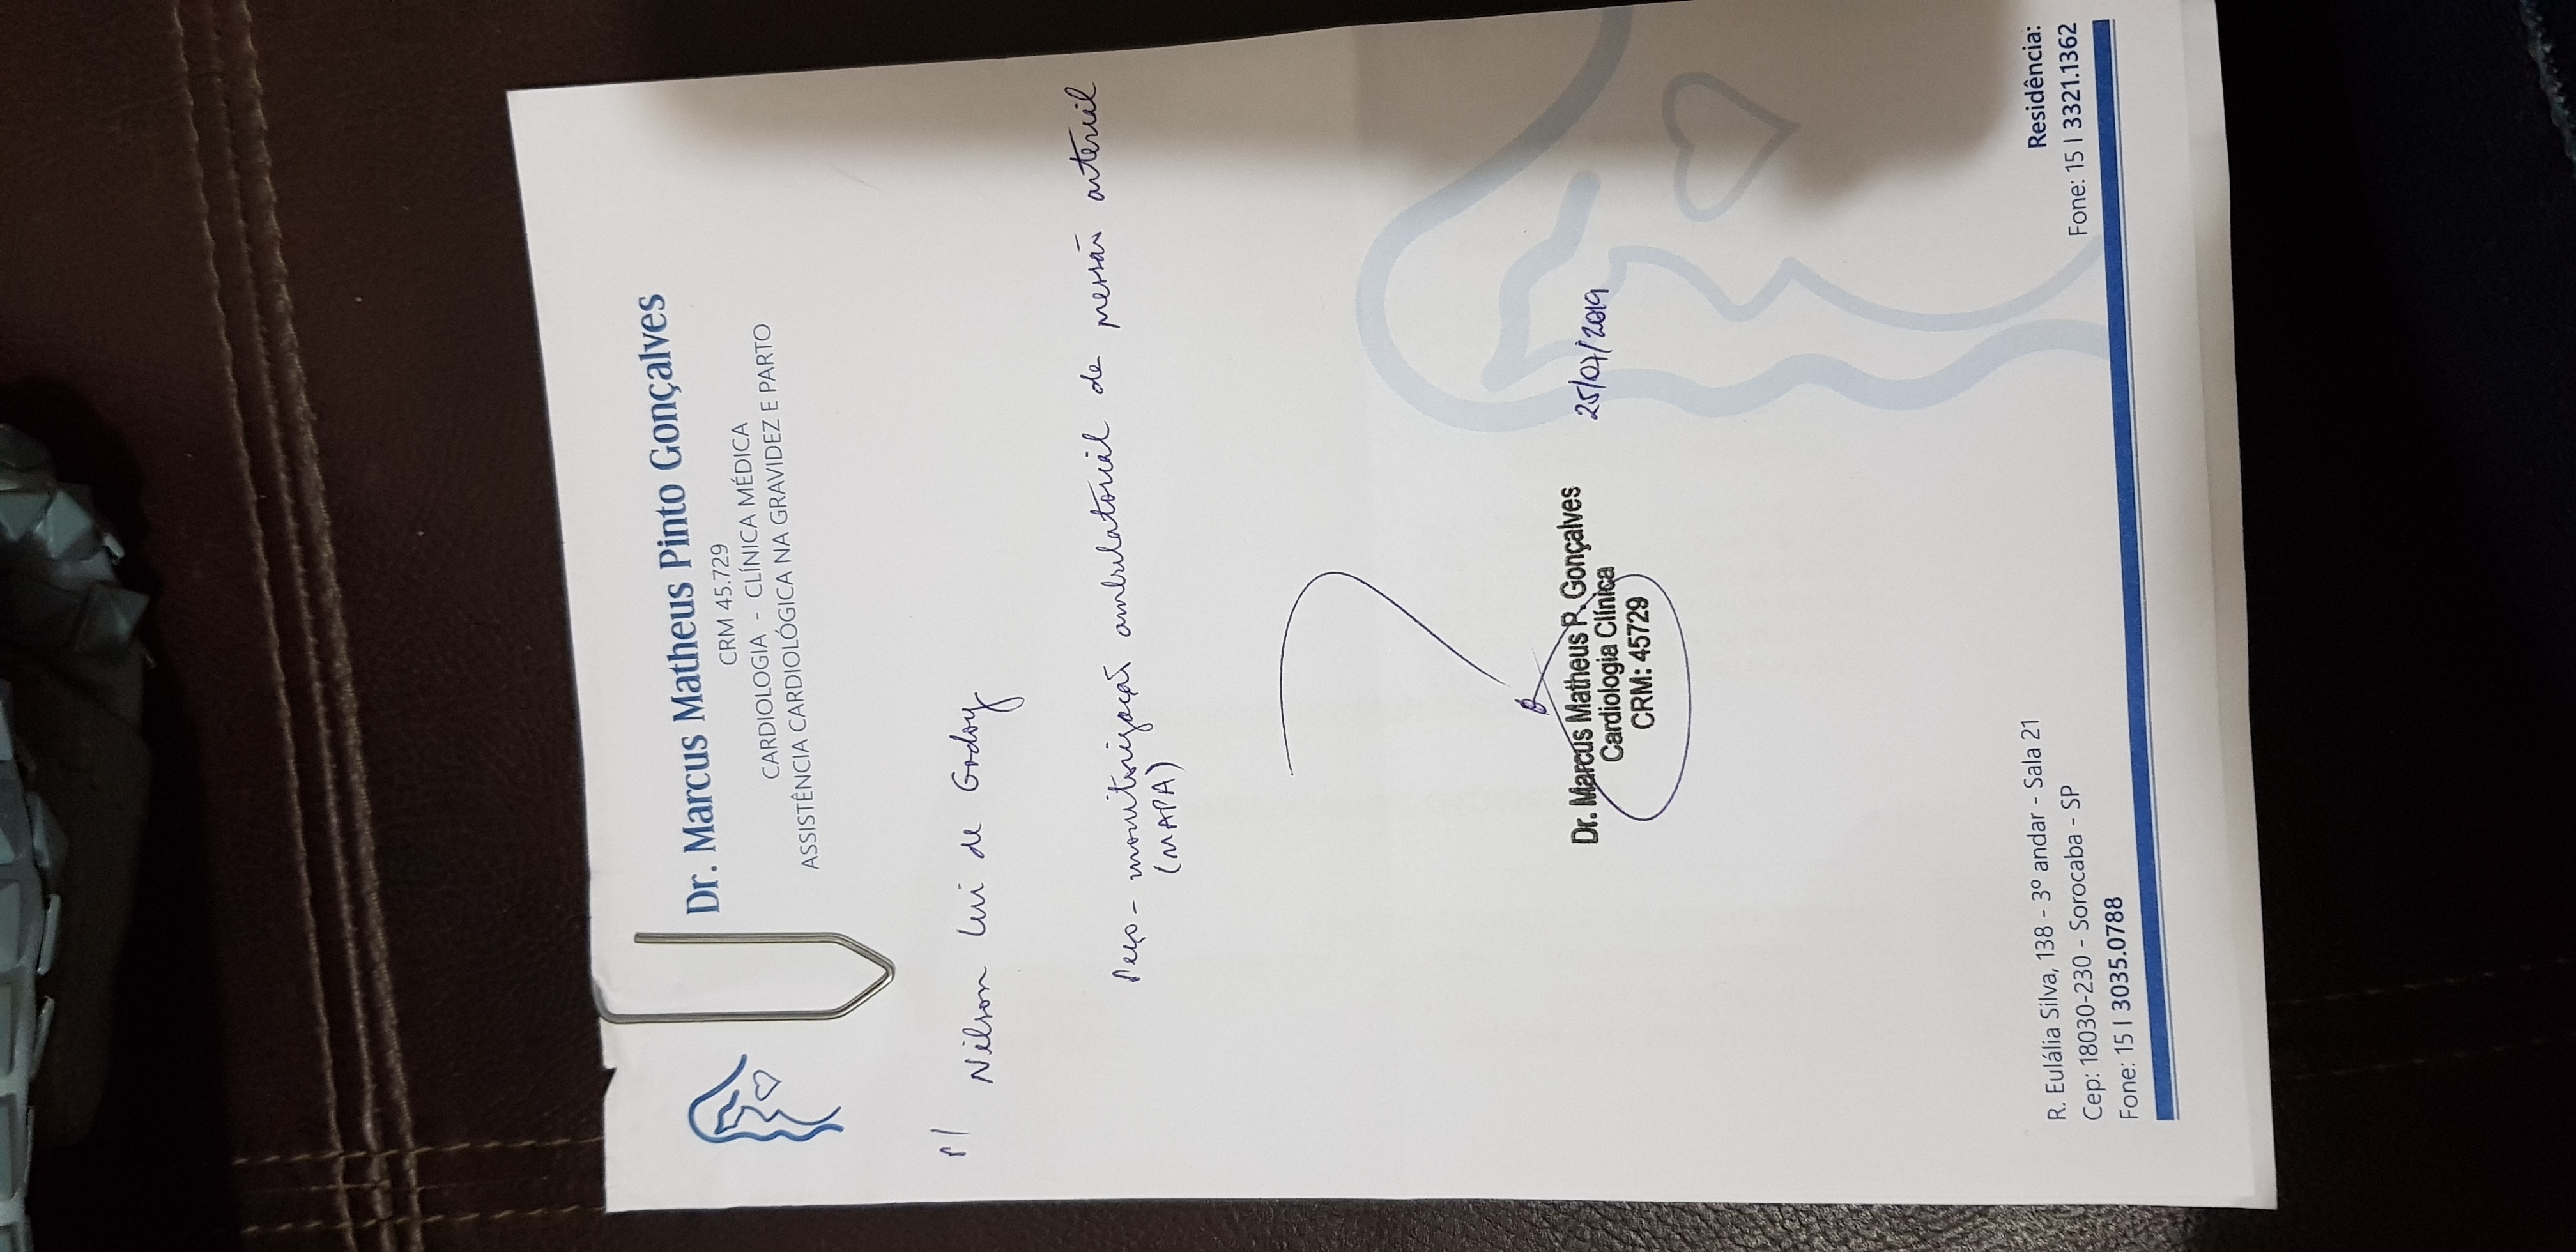 Dr. Marcus Matheus Pinto Gonçalves
CRM 45.729
CARDIOLOGIA - CLÍNICA MÉDICA
ASSISTÊNCIA CARDIOLÓGICA NA GRAVIDEZ E PARTO
P/
Nilson Lui de Godoy
Peço - monitorização ambulatorial da pressão arterial
(MAPA)
Dr. Marcus Matheus P. Gonçalves
Cardiologia Clínica
CRM: 45729
25/07/2019
R. Eulália Silva, 138 - 3º andar - Sala 21
Cep: 18030-230 - Sorocaba - SP
Fone: 15 | 3035.0788
Residência:
Fone: 15 | 3321.1362